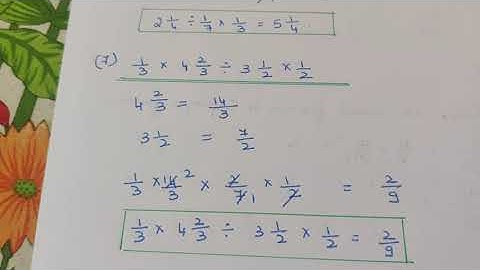 2 1/4 ÷ 1/7 × 1/3 = 5 1/4
(7) 1/3 × 4 2/3 ÷ 3 1/2 × 1/2
4 2/3 = 14/3
3 1/2 = 7/2
1/3 × 14/3 2 × 2/7 1 × 1/2 = 2/9
1/3 × 4 2/3 ÷ 3 1/2 × 1/2 = 2/9